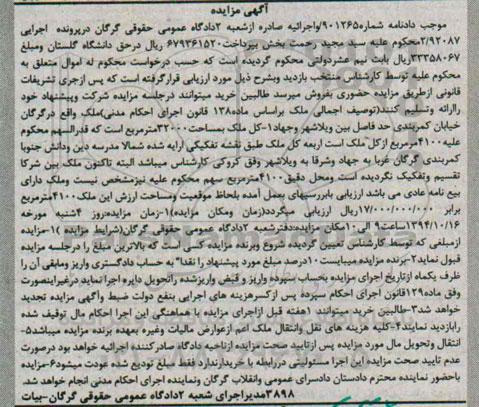 آگهی مزایده
موجب دادنامه شماره۹۰۱۲۶۵/واجرائیه صادره ازشعبه ۲دادگاه عمومی حقوقی گرگان درپرونده اجرایی
۲/۹۲۰۸۷محکوم علیه سید مجید رحمت بخش بپرداخت۶۷۹۳۶۱۵۲۰ ریال درحق دانشگاه گلستان ومبلغ
۳۳۳۵۸۰۶۷ریال بابت نیم عشردولتی محکوم گردیده است که حسب درخواست محکوم له اموال متعلق به
محکوم علیه توسط کارشناس منتخب بازدید وبشرح ذیل مورد ارزیابی قرارگرفته است که پس ازجری تشریفات
قانونی ازطریق مزایده حضوری بفروش میرسد طالبین خرید میتوانند درجلسه مزایده شرکت وپیشنهاد خود
راارائه وتسیم کنند(توصیف اجمالی ملک براساس ماده۱۳۸ قانون اجرای احکام مدنی)ملک واقع درگرگان
خیابان کمربندی حد فاصل بین ویلاشهر وجهاد۱-کل ملک بمساحت۳۲۰۰۰مترمربع است که قدرالسهم محکوم
علیه۴۱۰۰مرمربع ازکل ملک است اربعه کل ملک طبق نقشه تفکیکی ارایه شده شمالا مدرسه دین ودانش جنوبا
کمربندی گرگان غربا به جهاد وشرقا به ویلاشهر وفق کروکی کارشناس میباشد البته تاکنون ملک بین شرکا
تقسیم وتفکیک نگردیده است ومحل دقیق۴۱۰۰مترمربع سهم محکوم علیه نیزمشخص نیست وملک دارای
بیع نامه عادی می باشد ارزیابی بابررسیهای بعمل آمده بلحاظ موقعیت ومساحت ارزش این ملک۴۱۰۰مترمربع
برابر ۱۷/۰۰۰/۰۰۰/۰۰۰ریال ارزیابی میگردد(زمان ومکان مزایده)۱-زمان مزایده:روز ۴شنبه مورخه
۱۳۹۴/۱۰/۱۶ساعت۹ الی۱۰مکان مزایده:دفترشعبه ۲دادگاه عمومی حقوقی گرگان(شرایط مزایده )۱-مزایده
ازمبلغی که توسط کارشناس تعیین گردیده شروع وبرنده مزایده کسی است که بالاترین مبلغ را درجلسه مزایده
قبول نماید۲-برنده مزایده میبایست ۱۰درصد مبلغ مورد پیشنهاد را نقدا" به حساب دادگستری واریز ومابقی آن را
ظرف یکماه ازتاریخ اجرای مزایده بحساب سپرده واریز و قبض واریزشده راتحویل دایره اجرا نماید درغیراینصورت
وفق ماده۱۲۹قانون اجرای احکام سپرده پس ازکسرهزینه های اجرایی بنفع دولت ضبط وآگهی مزایده تجدید
خواهد شد۳-طالبین خرید میتوانند ۱هفته قبل ازاجرای مزایده با هماهنگی این اجرا احکام مال توقیف شده
رابازدید نمایند۴-کلیه هزینه های نقل وانتقال ملک اعم ازعوارض مالیات وغیره بعهده برنده مزایده میباشد۵-
انتقال وتحویل مال مورد مزایده پس ازتایید صحت مزایده ازناحیه دادگاه صادرکننده اجرائیه خواهد بود درصورت
عدم تایید صحت مزایده این اجرا مسئولیتی دررابطه با خریدارندارد فقط مبلغ تودیع شده عودت میشود۶-مزایده
باحضور نماینده محترم دادستان دادسرای عمومی وانقلاب گرگان ونماینده اجرای احکام مدنی انجام خواهد شد.
۳۸۹۸مدیراجرای شعبه ۲دادگاه عمومی حقوقی گرگان-بیات